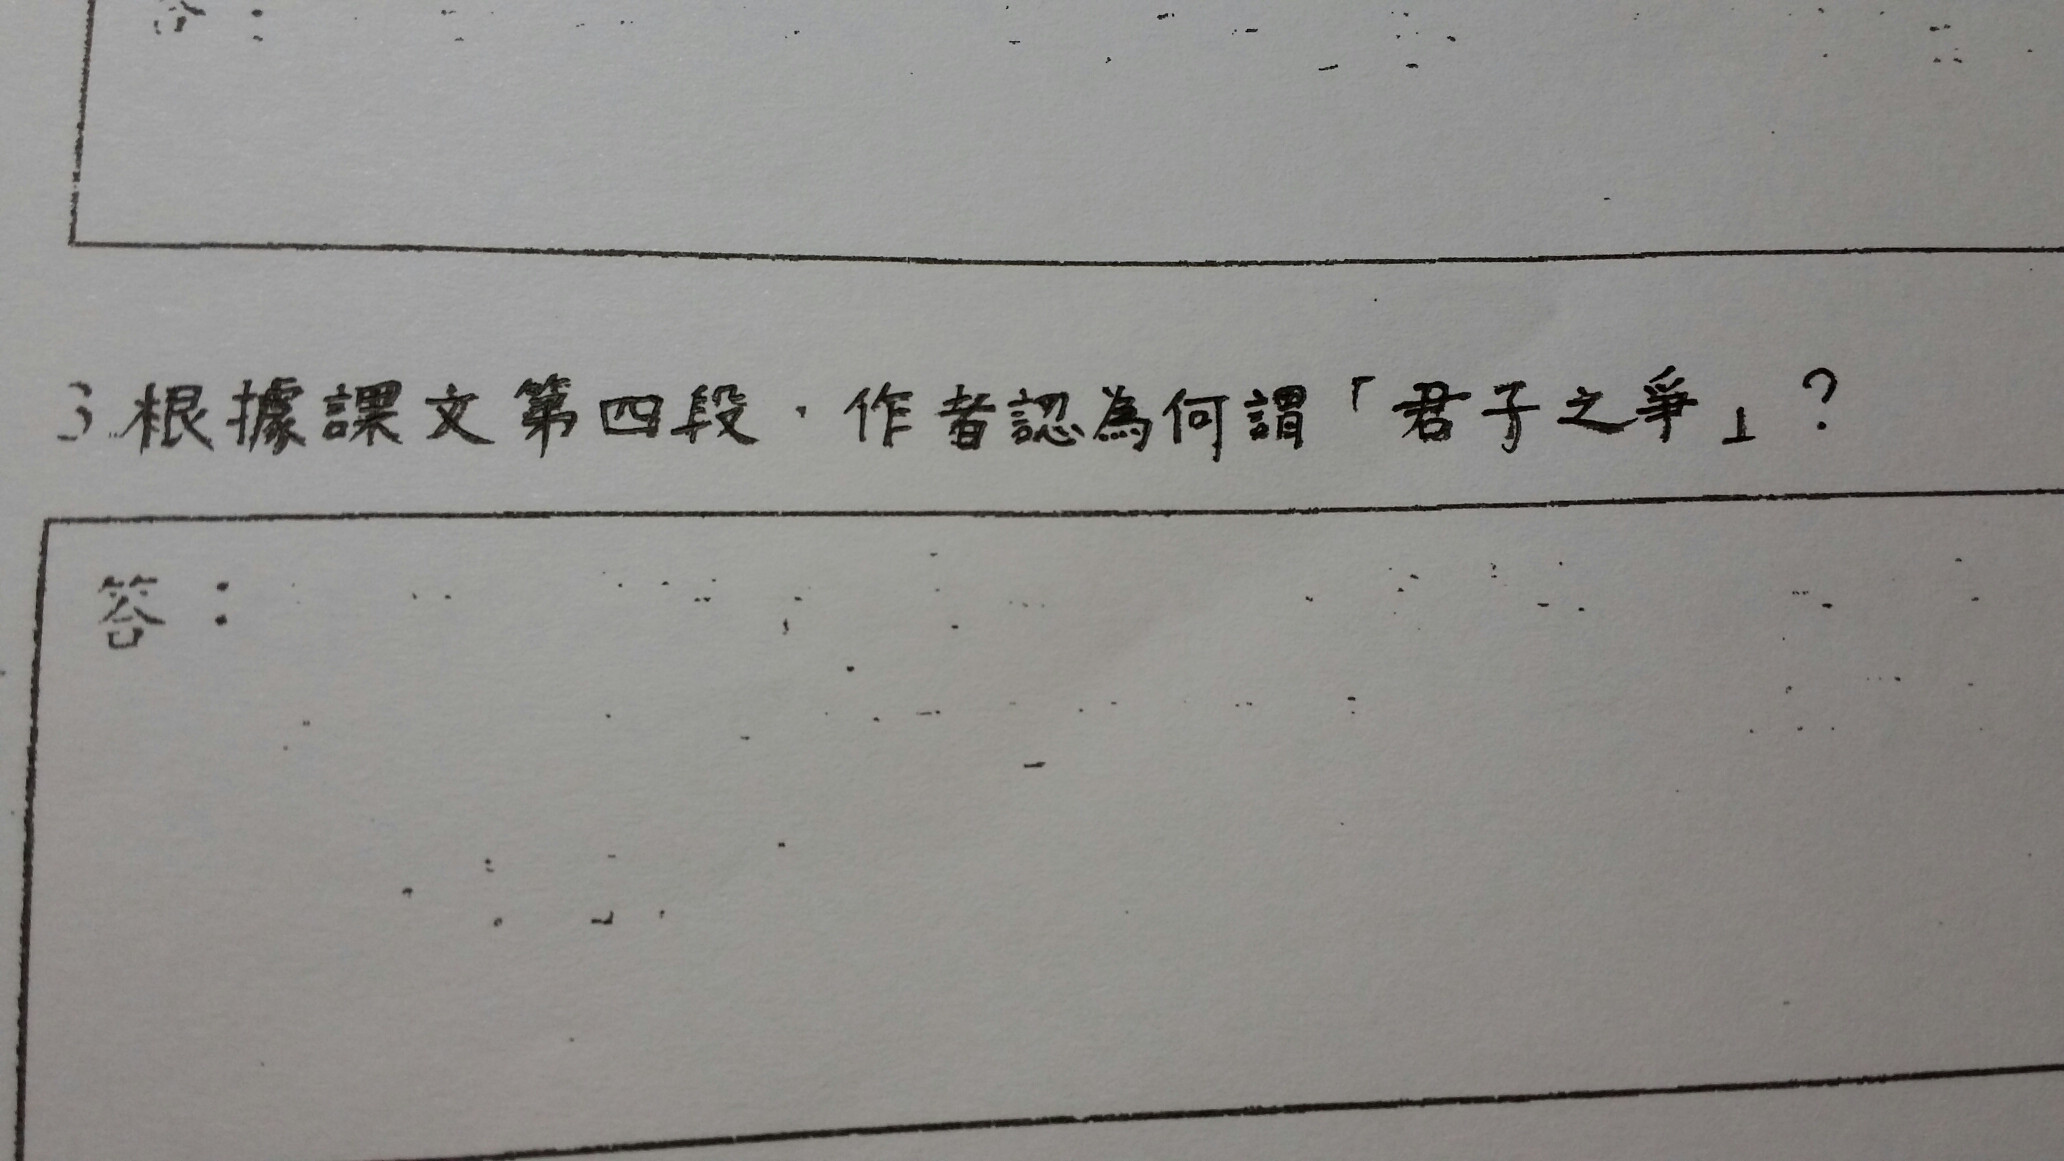 答：
3.根據課文第四段，作者認為何謂「君子之爭」？
答：